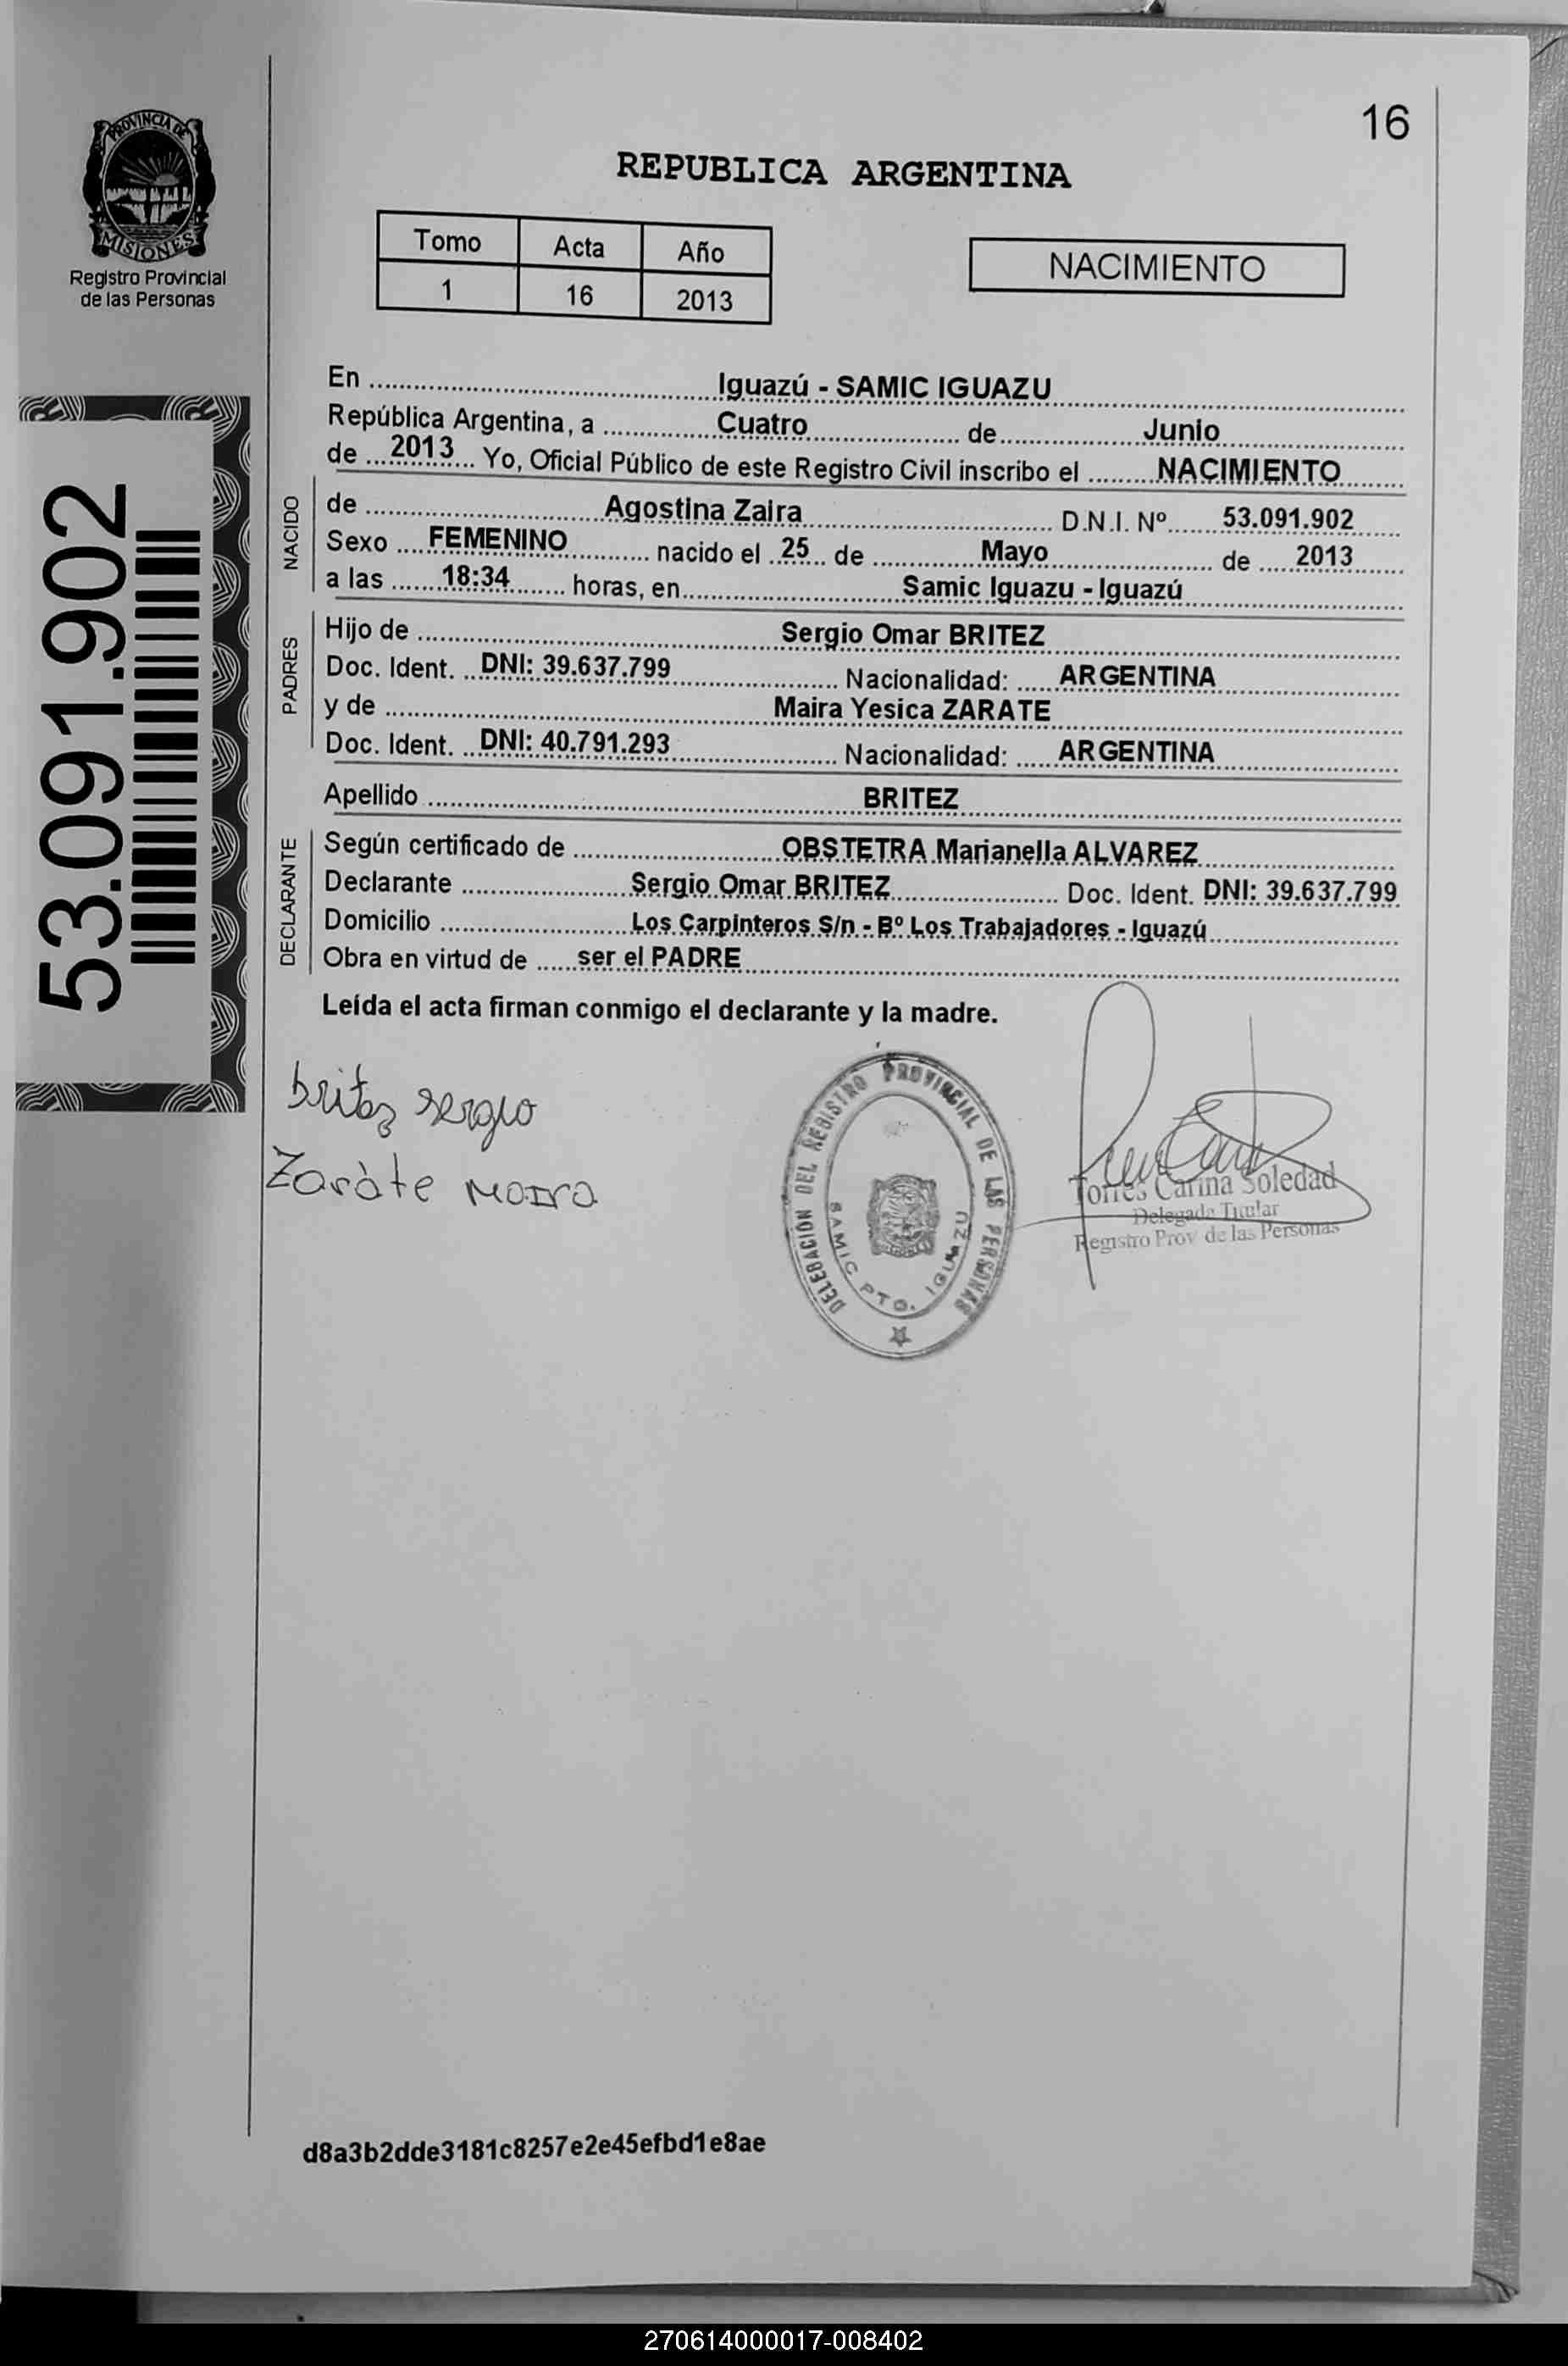 16
PROVINCIA DE
MISIONES
Registro Provincial
de las Personas
REPUBLICA ARGENTINA
Tomo Acta Año
1 16 2013
NACIMIENTO
53.091.902
En Iguazú - SAMIC IGUAZU
República Argentina, a Cuatro de Junio
de 2013 Yo, Oficial Público de este Registro Civil inscribo el NACIMIENTO
NACIDO
de Agostina Zaira D.N.I. Nº 53.091.902
Sexo FEMENINO nacido el 25 de Mayo de 2013
a las 18:34 horas, en Samic Iguazu - Iguazú
PADRES
Hijo de Sergio Omar BRITEZ
Doc. Ident. DNI: 39.637.799 Nacionalidad: ARGENTINA
y de Maira Yesica ZARATE
Doc. Ident. DNI: 40.791.293 Nacionalidad: ARGENTINA
Apellido BRITEZ
DECLARANTE
Según certificado de OBSTETRA Marianella ALVAREZ
Declarante Sergio Omar BRITEZ Doc. Ident. DNI: 39.637.799
Domicilio Los Carpinteros S/n - Bº Los Trabajadores - Iguazú
Obra en virtud de ser el PADRE
Leída el acta firman conmigo el declarante y la madre.
britez sergio
Zaràte Maira
DELEGACION DEL REGISTRO PROVINCIAL DE LAS PERSONAS
SAMIC PTO. IGUAZU
Torres Carina Soledad
Delegada Titular
Registro Prov de las Personas
d8a3b2dde3181c8257e2e45efbd1e8ae
270614000017-008402